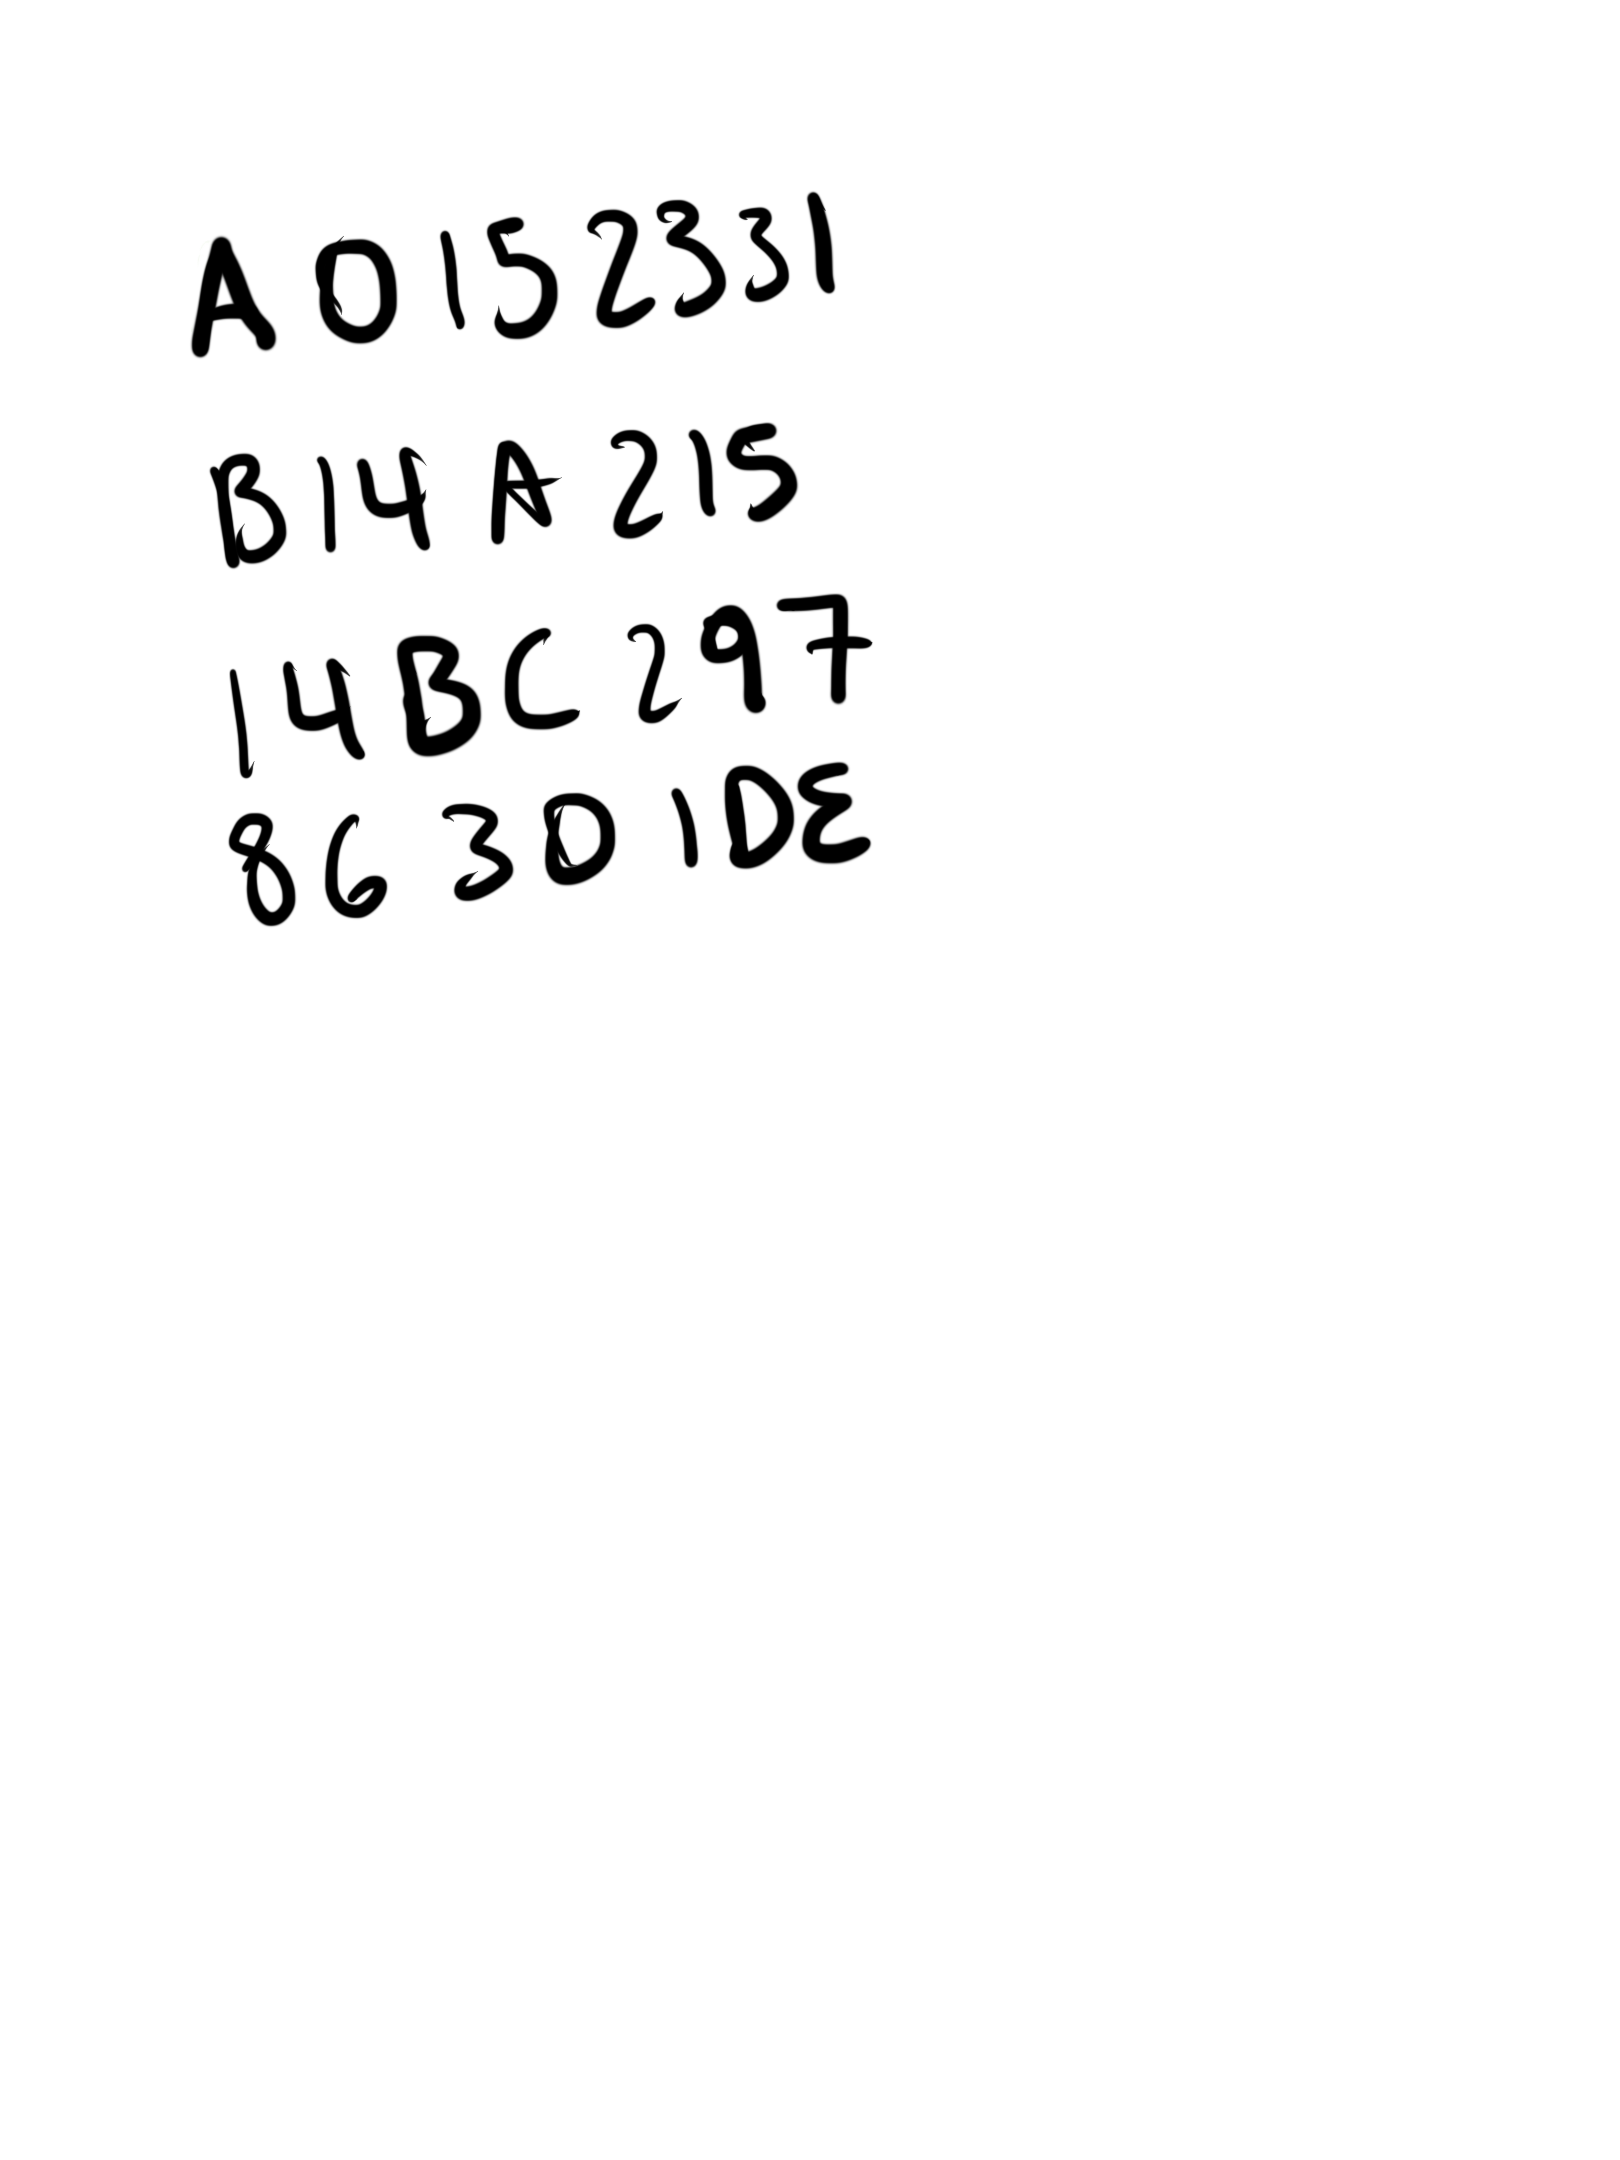 A 0152331
B14 A 215
14BC 297
86 30 1DE